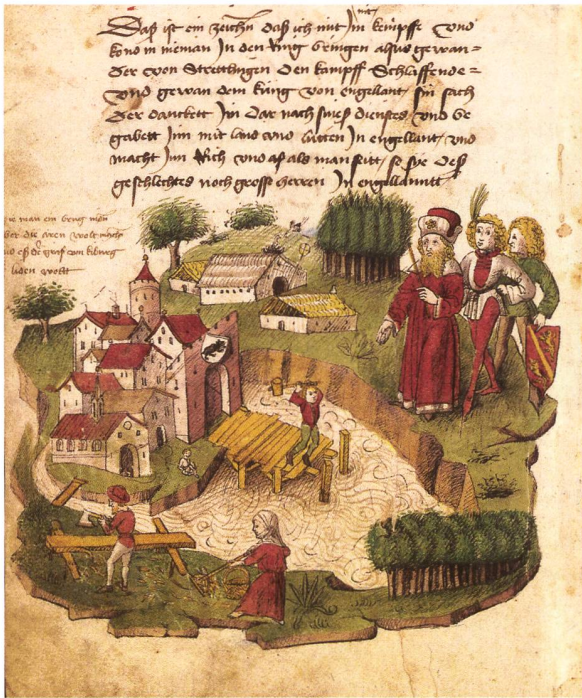 nit
Das ist ein zeichen das ich mit Im kempffe vnd
kond in nieman In den Ring bringen alsus gewan=
der von Stretlingen den kampff Schlaffende=
vnd gewan dem küng von engellant sin sach
der danckett Im dar nach sines dienstes vnd be
gabett Inn mit land vnd lütten In engellant vnd
macht Inn Rich vnd als man seitt so sye des
geschlechtes noch grosse herren In engellantt
wie man ein brug
über die aren wolt machen
vnd es der graf von kiburg
liden wolt